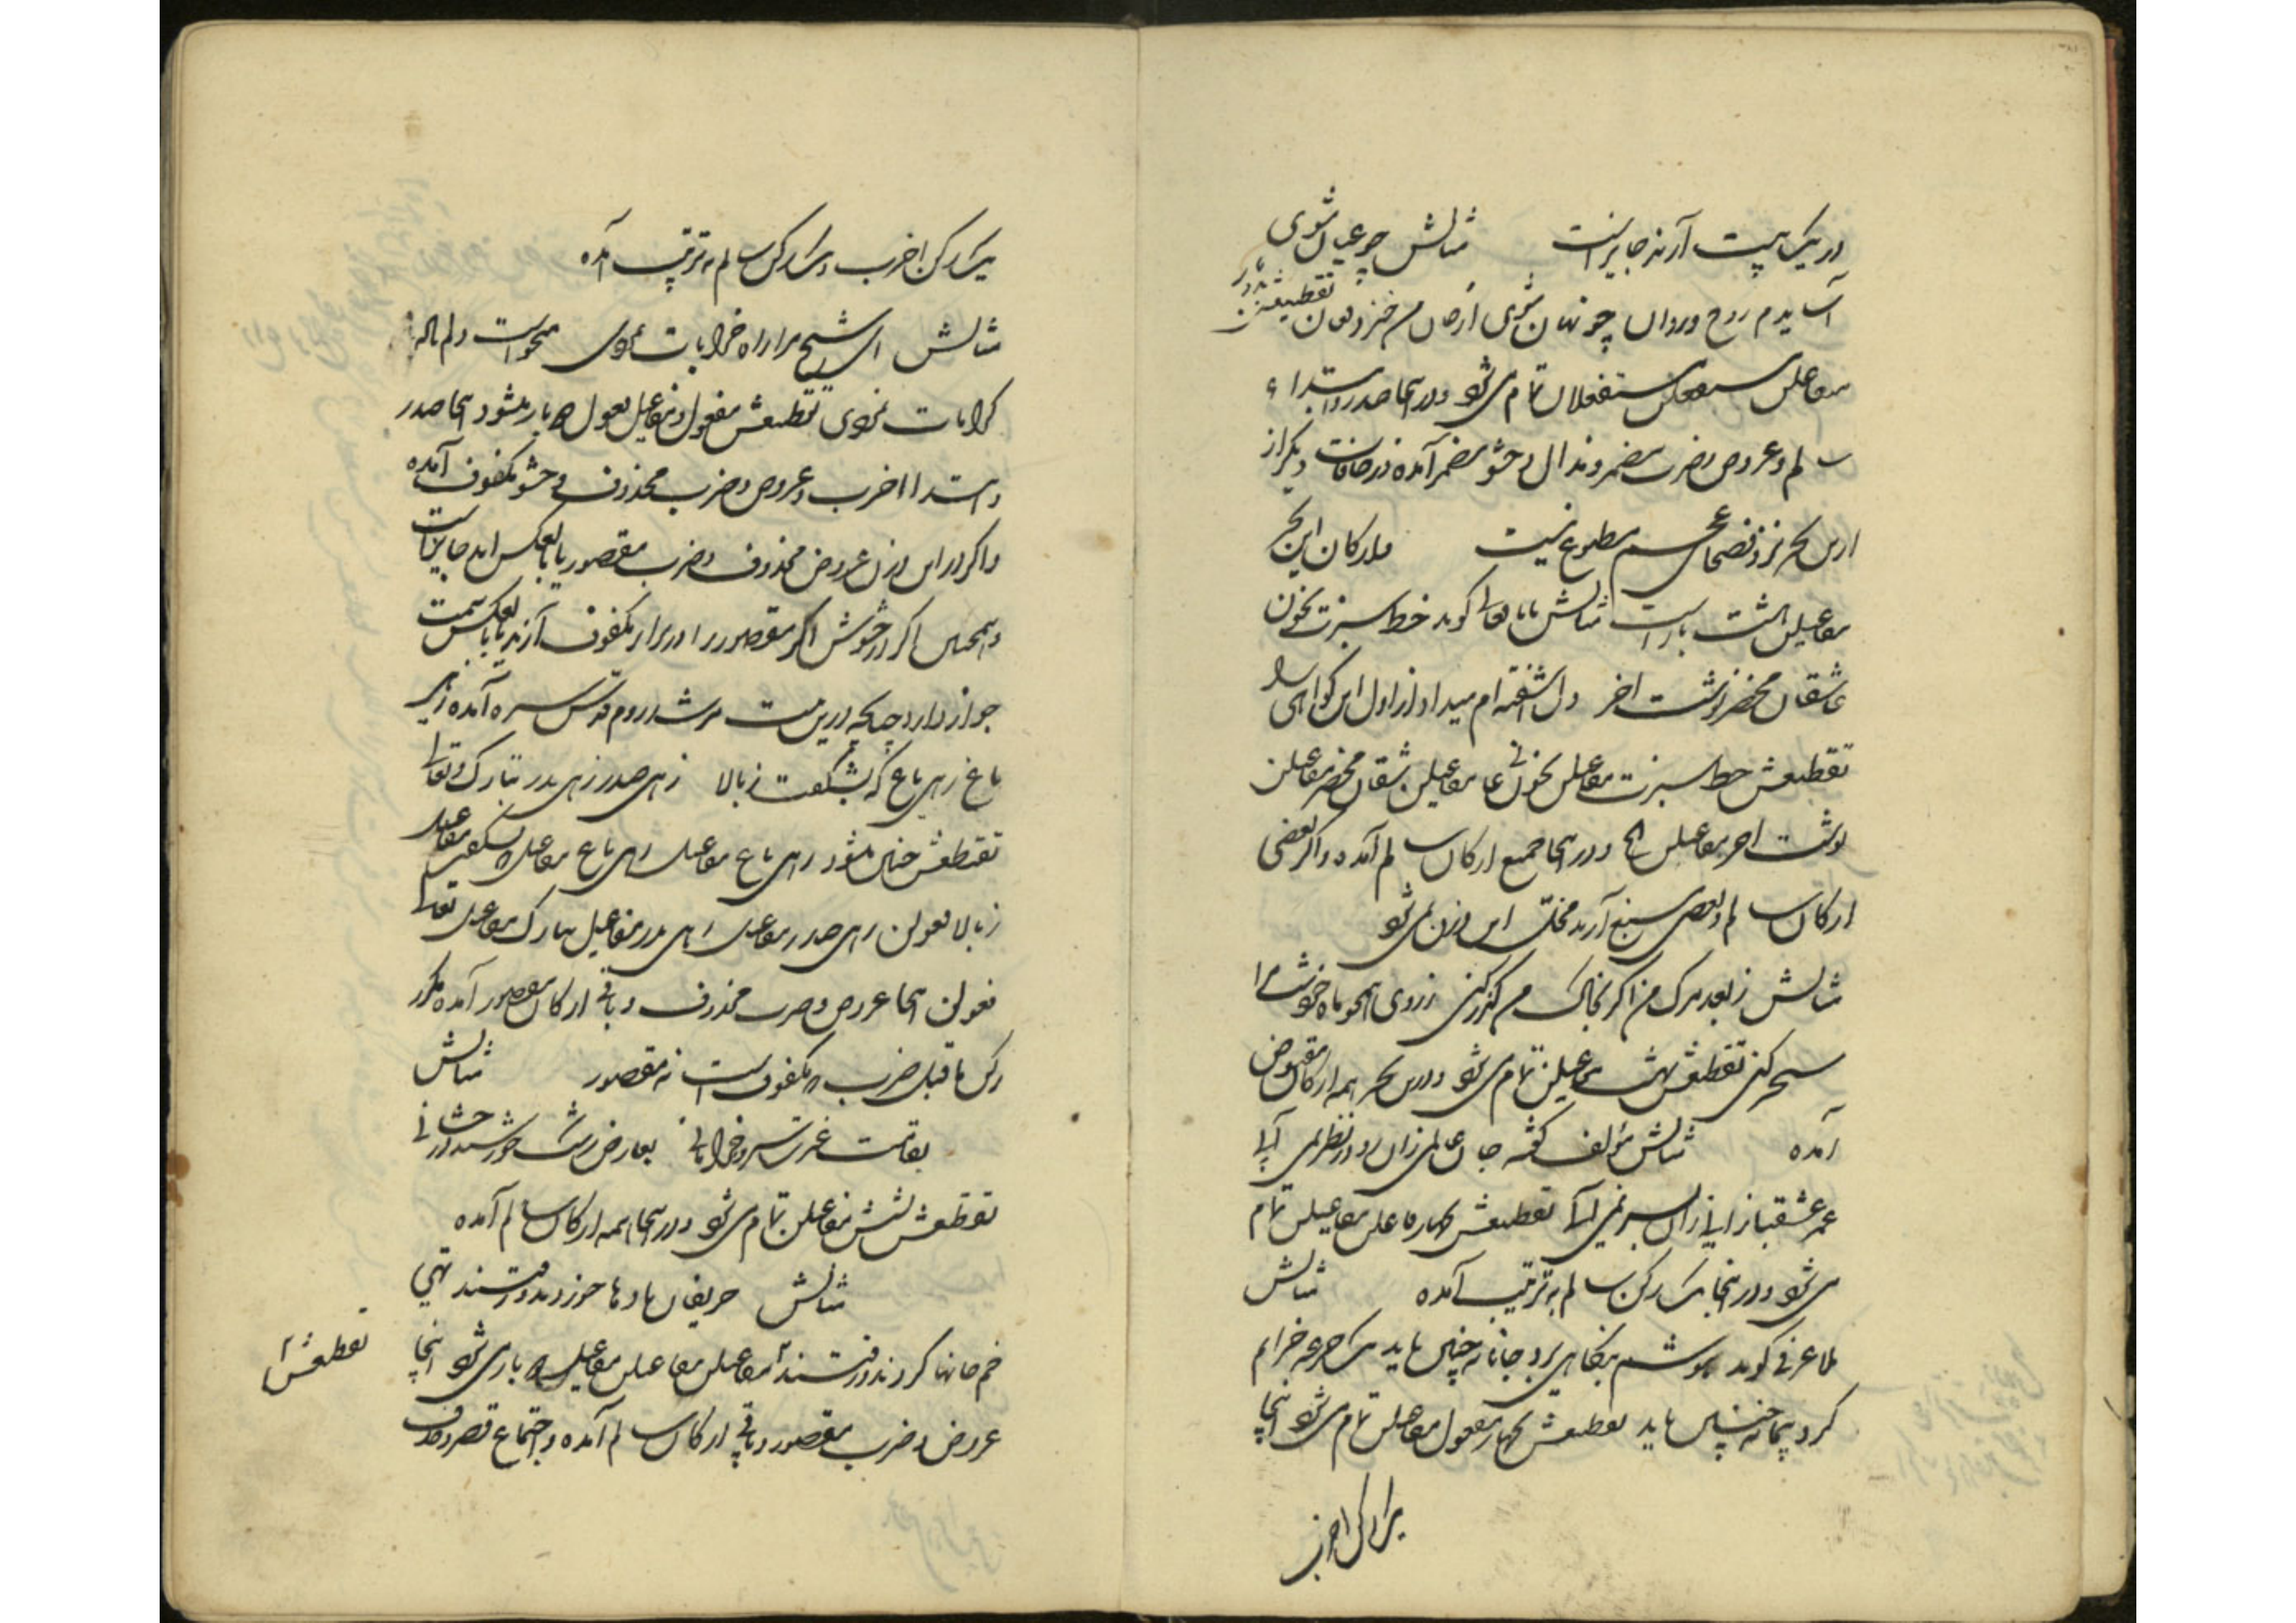 در یک بیت آرند جایز است مثالش چو عیان شوی
آسایدم روح و روان چو نهان شوی از جان من خیزد فغان تقطیعش
مستفعلان تمام می شود و در اینجا صدر و ابتداء
سالم و عروض و ضرب مضمر و مذال و حشو مضمر آمده و زحافات دیگر از
این بحر نزد فصحای عجم مطبوع نیست و ارکان این بحر
مفاعیلن هشت بار است مثالش گوید خط سبزت بخون
عاشقان محضر نوشت آخر دل آشفته ام میداد از اول این گواهی را
تقطیعش خط سبزت مفاعیلن بخونی عا مفاعیلن شقان محضر مفاعیلن
نوشت آخر مفاعیلن الخ و در اینجا جمیع ارکان سالم آمده و اگر بعضی
ارکان سالم و بعضی مسبغ آرند مختل این وزن نمی شود
مثالش ز بعد مرگ من اگر بخاک من گذر کنی ز روی همچو ماه خود شب مرا
سحر کنی تقطیعش بهشت مفاعلن تمام می شود و درین بحر همه ارکان مقبوض
آمده مثالش مؤلف گفته جان عالمی زان رو در نظر نمی آید
عمر عشقباز از آن بسر نمی آید تقطیعش چهار فاعلن مفاعیلن تمام
می شود و در اینجا یک رکن سالم به ترتیب آمده مثالش
ملا عرفی گوید هوشم بنگاهی برد جانانه چنین باید یک جرعه خرابم
کرد پیمانه چنین باید تقطیعش چهار مفعول مفاعیلن تمام می شود اینجا
یک رکن اخرب
یک رکن اخرب و یک رکن سالم به ترتیب آمده
مثالش ای شیخ مرا راه خرابات نمودی میخواست دلم باده
کرامات نمودی تقطیعش مفعول مفاعیل فعولن بار میشود اینجا صدر
و ابتدا اخرب و عروض و ضرب محذوف و حشو مکفوف آمده
و اگر در این وزن عروض محذوف و ضرب مقصور یا بالعکس آید جایز است
و همچنین اگر در حشوش اگر مقصور را در برابر مکفوف آرند یا بالعکس سمت
جواز دارد چنانکه درین بیت مرشد روم قدس سره آمده زهی
باغ زهی باغ که بشکفت ز بالا زهی صدر زهی بدر تبارک و تعالی
تقطیعش چنین میشود زهی باغ مفاعیل زهی باغ مفاعیل که بشکفت مفاعیل
ز بالا فعولن زهی صدر مفاعیل زهی بدر مفاعیل تبارک مفاعیل تعالی
فعولن اینجا عروض و ضرب محذوف و باقی ارکان مقصور آمده مگر
رکن ماقبل ضرب که مکفوف است نه مقصور مثالش
بقامت غیرت سرو خرامانی بعارض رشک خورشید درخشانی
تقطیعش بشش مفاعیلن تمام می شود و در اینجا همه ارکان سالم آمده
مثالش حریفان بادها خوردند و رفتند تهی
خم خانها کردند و رفتند مفاعیلن مفاعیلن مفاعیل باری شود اینجا
تقطیعش
عروض و ضرب مقصور و باقی ارکان سالم آمده و اجتماع قصر و حذف